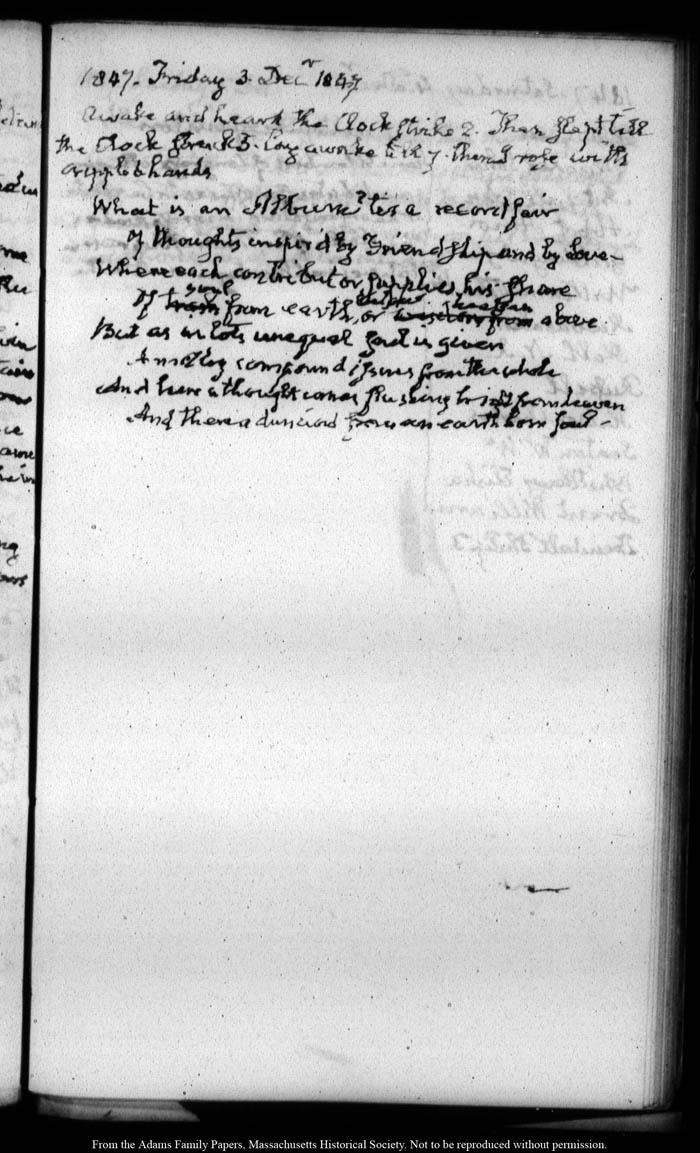 1847. Friday 3. Decr 1847
Awake and heard the Clock strike 2. Then slept till
the Clock struck 5. Lay awake till 7. Then I rose with
crippled hands
What is an Album? tis a record fair
Of thoughts inspir'd by Friendship and by Love
Where each contributor supplies his share
soul
Of from earth, or above
But as in lots unequal is given
A motley compound issues from the whole
And here a thought comes flashing from heaven
And there a from an earth born soul
From the Adams Family Papers, Massachusetts Historical Society. Not to be reproduced without permission.